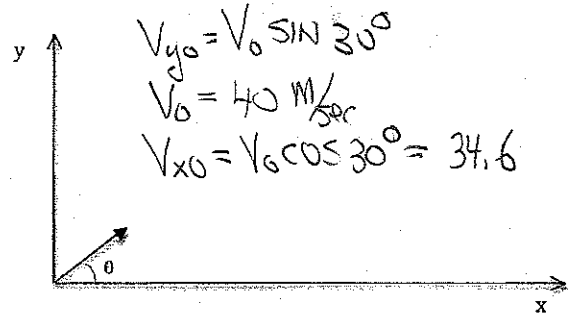 y
Vyo = Vo SIN 30°
Vo = 40 M/sec
Vxo = Vo COS 30° = 34.6
θ
x